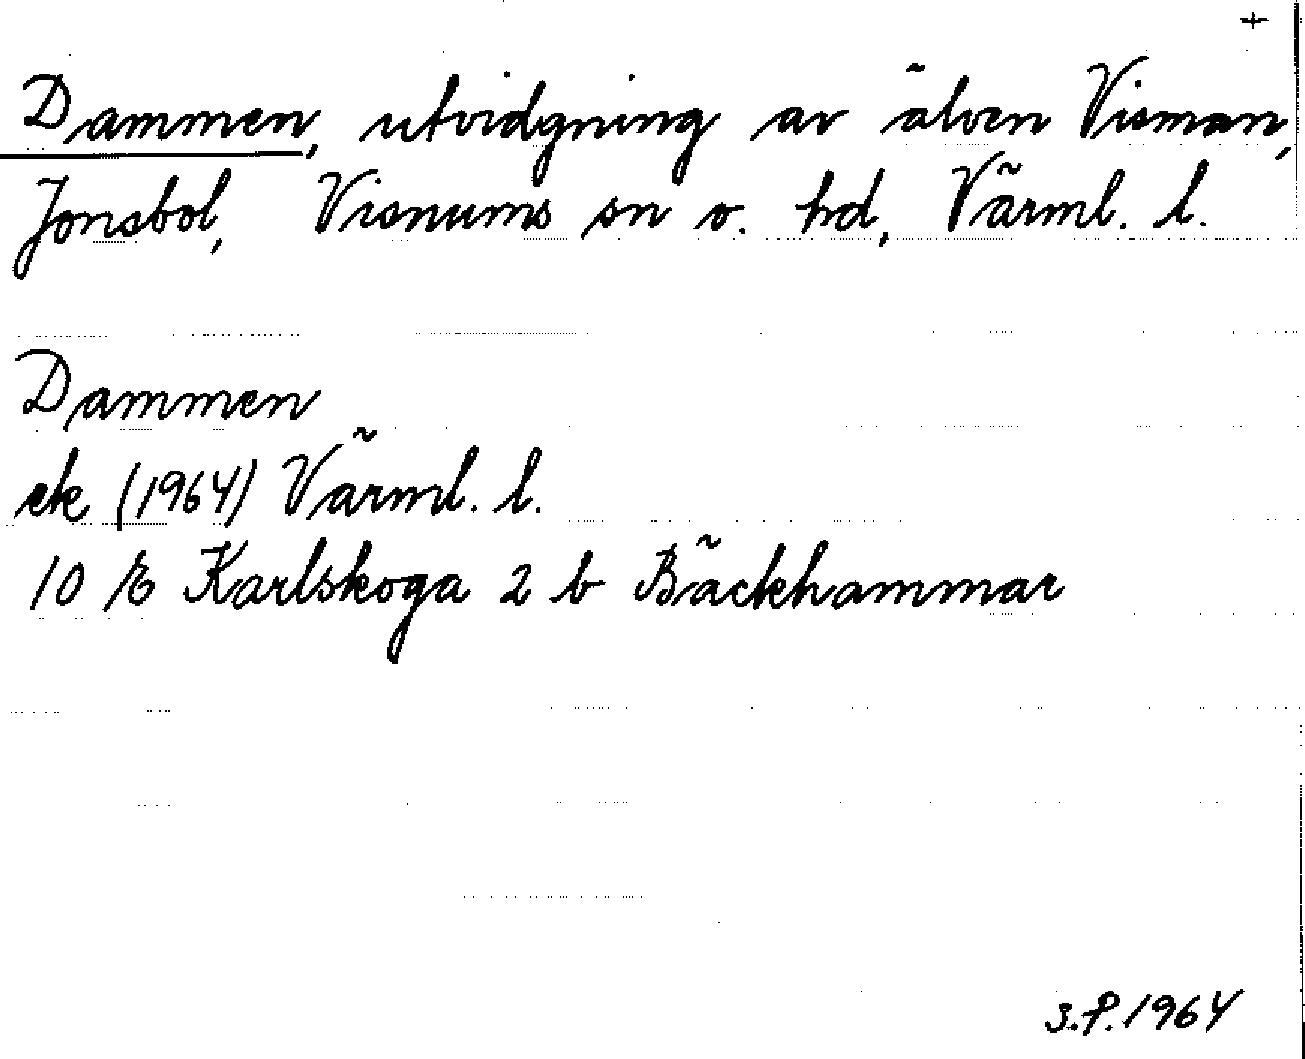 +
Dammen, utvidgning av älven Visman,
Jonsbol, Visnums sn o. hd, Värml. l.
Dammen
ek (1964) Värml. l.
10 E Karlskoga 2 b Bäckhammar
S.P. 1964